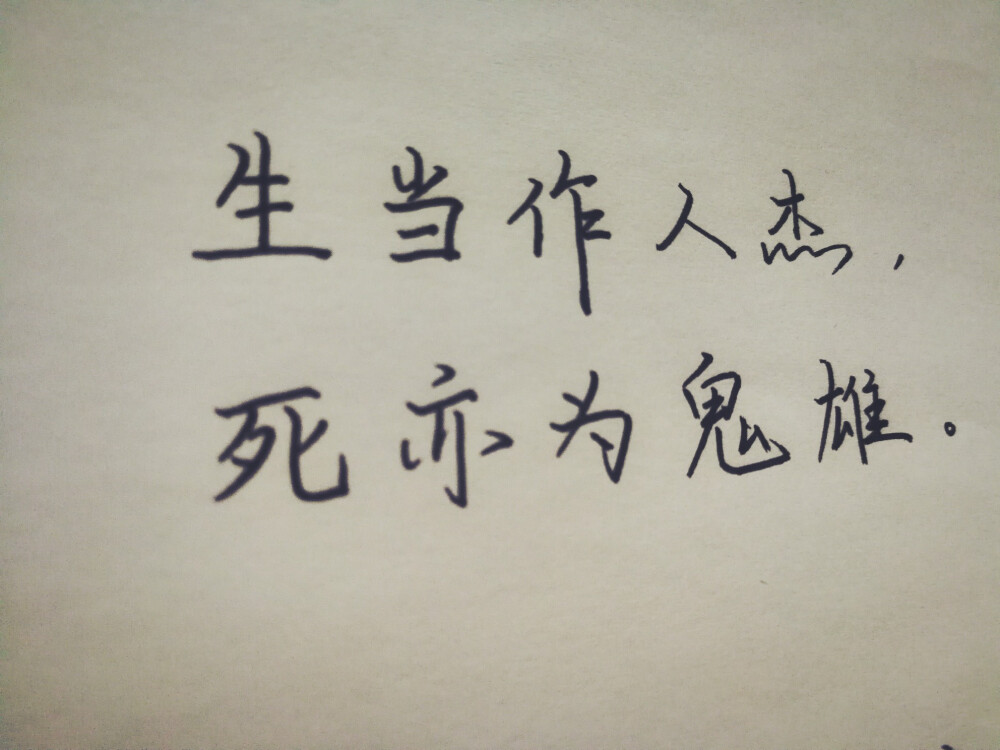 生当作人杰，
死亦为鬼雄。